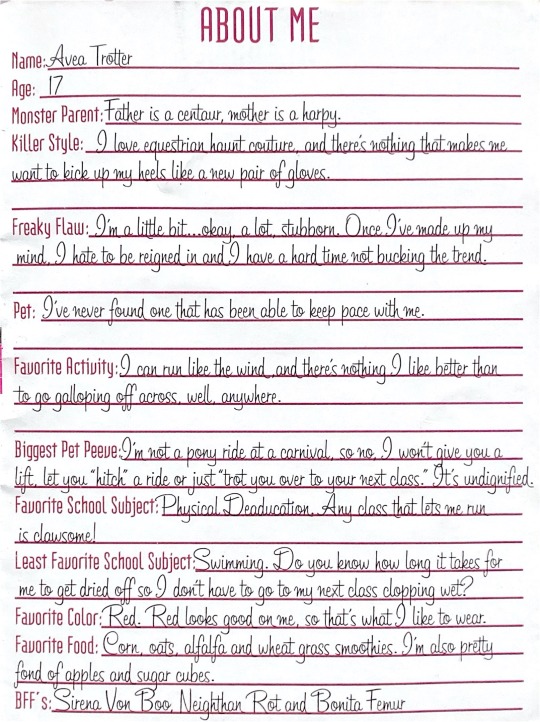 ABOUT ME
Name: Avea Trotter
Age: 17
Monster Parent: Father is a centaur, mother is a harpy.
Killer Style: I love equestrian haunt couture, and there's nothing that makes me
want to kick up my heels like a new pair of gloves.
Freaky Flaw: I'm a little bit...okay, a lot, stubborn. Once I've made up my
mind, I hate to be reigned in and I have a hard time not bucking the trend.
Pet: I've never found one that has been able to keep pace with me.
Favorite Activity: I can run like the wind and there's nothing I like better than
to go galloping off across, well, anywhere.
Biggest Pet Peeve: I'm not a pony ride at a carnival, so no, I won't give you a
lift, let you "hitch" a ride or just "trot you over to your next class." It's undignified.
Favorite School Subject: Physical Deaducation. Any class that lets me run
is clawsome!
Least Favorite School Subject: Swimming. Do you know how long it takes for
me to get dried off so I don't have to go to my next class clopping wet?
Favorite Color: Red. Red looks good on me, so that's what I like to wear.
Favorite Food: Corn, oats, alfalfa and wheat grass smoothies. I'm also pretty
fond of apples and sugar cubes.
BFF's: Sirena Von Boo, Neighthan Rot and Bonita Femur